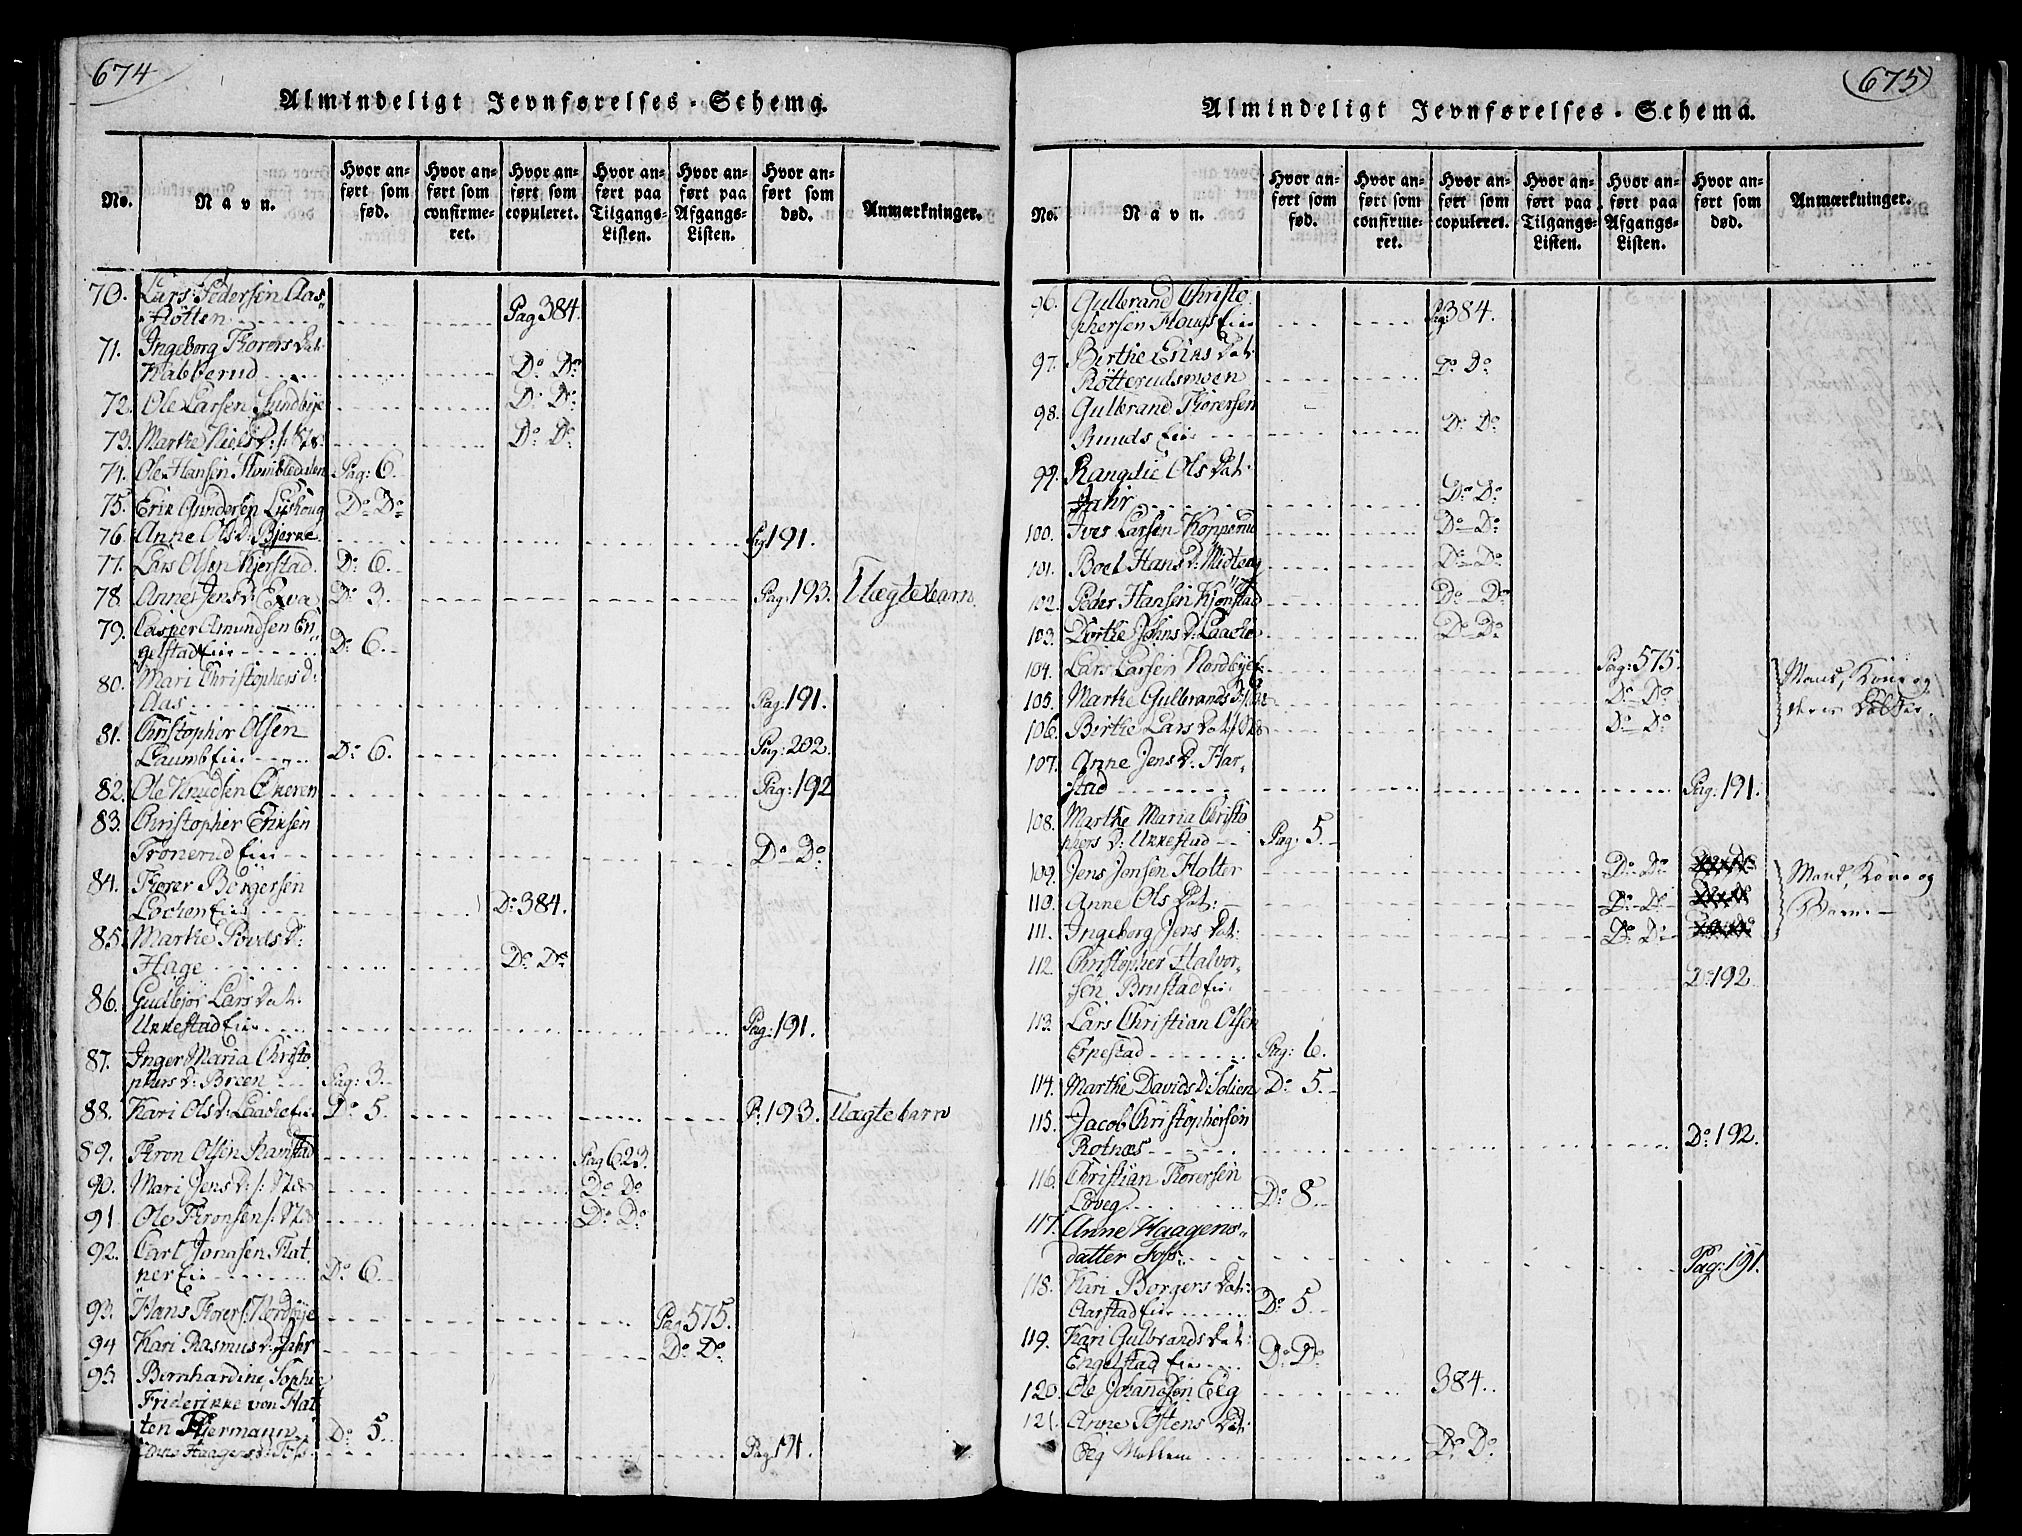 674
Almindeligt Jevnførelses-Schema.
No.
Navn.
Hvor anført som fød.
Hvor anført som confirmeret.
Hvor anført som copuleret.
Hvor anført paa Tilgangs-Listen.
Hvor anført paa Afgangs-Listen.
Hvor anført som død.
Anmærkninger.
70. Lars Pedersen Aas
Røtten Pag 384.
71. Ingeborg Thorers Dat:
Habberud D: D:
72. Ole Larsen Sundbye D: D:
73. Marthe Niels D:
D: D:
74. Ole Hansen Humbledalen Pag: 6.
75. Erik Gundersen Lyshoug D: D:
76. Anne Ols D: Bjerke Pag 191.
77. Lars Olsen Kjerstad. D: 6.
78. Anne Jens D: D: 3. Pag: 193. Plægtebarn
79. Casper Amundsen En
gelstad Eie D: 6.
80. Mari Christophers D:
Aas Pag: 191.
81. Christopher Olsen
Laumb Eie D: 6. Pag: 202.
82. Ole Knudsen Økeren Pag: 192
83. Christopher Eriksen
Tronerud Eie D: D:
84. Thorer Børgersen
Lochen Eie D: 384.
85. Marthe Povels D:
Hage D: D:
86. Gudbjør Lars Dat:
Ukkestad Eie Pag: 191.
87. Inger Maria Christo
phers D: Breen Pag: 3.
88. Kari Ols D: Laache Eie D: 5. P: 193. Plægtebarn
89. Thron Olsen Ramstad Pag 623.
90. Mari Jens D: D: D:
91 Ole Thronsen D: D:
92. Carl Jonasen Flat
ner Eie D: 6.
93. Hans Thorers: Nordbye Pag 575.
94 Kari Rasmus D: Jahr D: D:
95 Bernhardine Sophie
Friderikke von Hat
ten D: 5.
Anne Haagens D: Foss Pag 191.
675
Almindeligt Jevnførelses-Schema.
No.
Navn.
Hvor anført som fød.
Hvor anført som confirmeret.
Hvor anført som copuleret.
Hvor anført paa Tilgangs-Listen.
Hvor anført paa Afgangs-Listen.
Hvor anført som død.
Anmærkninger.
96. Gulbrand Christo
phersen Houg Eie Pag: 384.
97. Berthe Eriks Dat:
Røtterudsmoen D: D:
98. Gulbrand Thorersen
Runds Eie D: D:
99. Rangdie Ols Dat:
Jahr D: D:
100. Iver Larsen Kopperud D: D:
101. Boel Hans D: Midteng D: D:
102. Peder Hansen Kjønstad D: D:
103. Dorthe Johns D: Laache D: D:
104. Lars Larsen Nordbye Pag: 575.
105. Marthe Gulbrands D: D: D:
106. Birthe Lars Dat: D: D:
Mand, Kone og
deres Datter
107. Anne Jens D: Har-
stad Pag: 191.
108. Marthe Maria Christo
phers D: Ukkestad Pag: 5.
109. Jens Jensen Holter D: D:
110. Anne Ols Dat: D: D:
111. Ingeborg Jens Dat: D: D:
Mand, Kone og
Barn.
112. Christopher Halvor-
sen Brustad Eie D: 192
113. Lars Christian Olsen
Erpestad Pag: 6.
114. Marthe Davids D: Solien D: 5.
115. Jacob Christophersen
Rotnæs D: 192.
116. Christian Thorersen
Løveg D: 8.
117. Anne Haagens
datter Foss Pag: 191.
118. Kari Borgers Dat:
Aarstad Eie D: 5.
119. Kari Gulbrands Dat:
Engelstad Eie D: D:
120. Ole Johansen Eeg 384.
121. Anne Tostens Dat:
Eeg D: D: